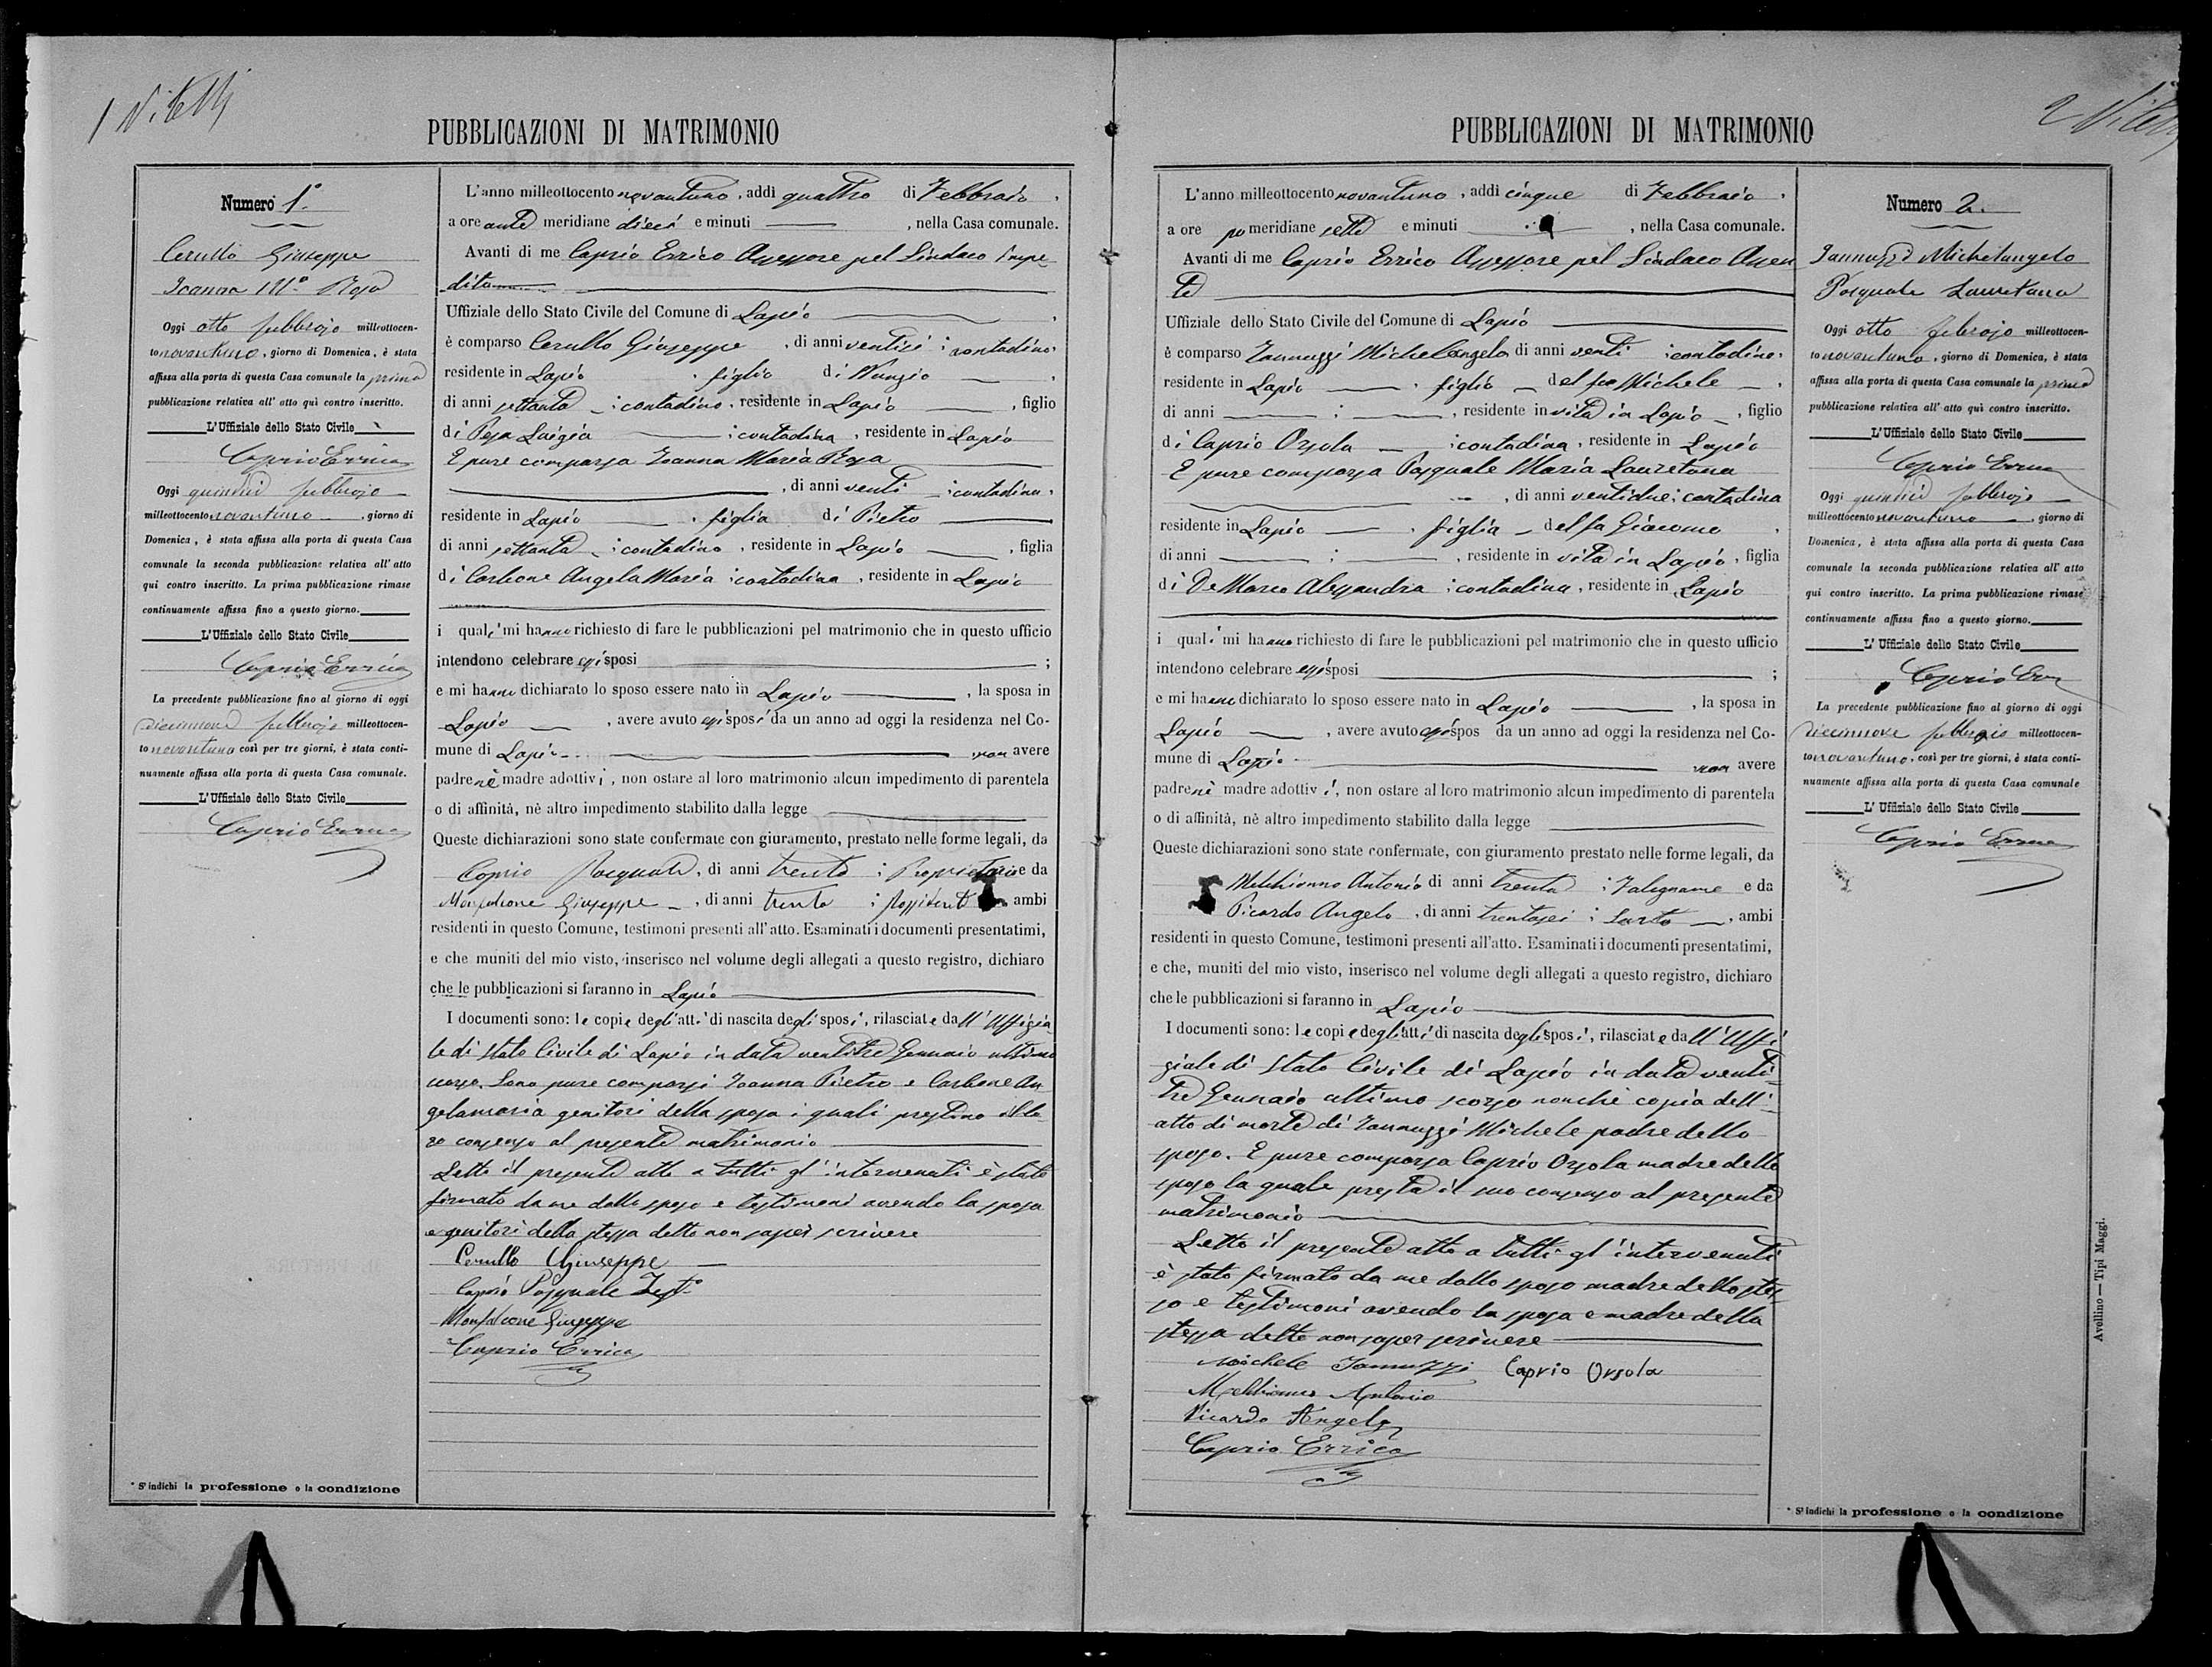 1 Vitelli
PUBBLICAZIONI DI MATRIMONIO
Numero 1°
Cerullo Giuseppe
Ioanna Mª Rosa
Oggi otto febbrajo milleottocen-
to novantuno, giorno di Domenica, è stata
affissa alla porta di questa Casa comunale la prima
pubblicazione relativa all' atto quì contro inscritto.
L'Uffiziale dello Stato Civile
Caprio Errico
Oggi quindici febbrajo
milleottocento novantuno, giorno di
Domenica, è stata affissa alla porta di questa Casa
comunale la seconda pubblicazione relativa all' atto
qui contro inscritto. La prima pubblicazione rimase
continuamente affissa fino a questo giorno.
L'Uffiziale dello Stato Civile
Caprio Errico
La precedente pubblicazione fino al giorno di oggi
diecinnove febbrajo milleottocen-
to novantuno così per tre giorni, è stata conti-
nuamente affissa alla porta di questa Casa comunale.
L'Uffiziale dello Stato Civile
Caprio Errico
* S' indichi la professione o la condizione
L'anno milleottocento novantuno, addì quattro di Febbraio,
a ore anti meridiane dieci e minuti , nella Casa comunale.
Avanti di me Caprio Errico Assessore pel Sindaco Impe-
dito
Uffiziale dello Stato Civile del Comune di Lapio ,
è comparso Cerullo Giuseppe , di anni ventisi ; contadino,
residente in Lapio , figlio di Nunzio ,
di anni settanta ; contadino, residente in Lapio , figlio
di Pesa Luigia ; contadina , residente in Lapio
E pure comparsa Ioanna Maria Rosa
, di anni venti ; contadina,
residente in Lapio , figlia di Pietro
di anni settanta ; contadino , residente in Lapio , figlia
di Carbone Angela Maria ; contadina , residente in Lapio
i quali mi hanno richiesto di fare le pubblicazioni pel matrimonio che in questo ufficio
intendono celebrare essi sposi ;
e mi hanno dichiarato lo sposo essere nato in Lapio , la sposa in
Lapio , avere avuto essi sposi da un anno ad oggi la residenza nel Co-
mune di Lapio non avere
padre nè madre adottivi , non ostare al loro matrimonio alcun impedimento di parentela
o di affinità, nè altro impedimento stabilito dalla legge
Queste dichiarazioni sono state confermate con giuramento, prestato nelle forme legali, da
Caprio Pasquale, di anni trenta ; Proprietario e da
Monfalcone Giuseppe , di anni trenta ; Possidente ambi
residenti in questo Comune, testimoni presenti all' atto. Esaminati i documenti presentatimi,
e che muniti del mio visto, inserisco nel volume degli allegati a questo registro, dichiaro
che le pubblicazioni si faranno in Lapio
I documenti sono: le copie degli atti di nascita degli sposi, rilasciate dall' Uffizia-
le di Stato Civile di Lapio in data ventitre Gennaio ultimo
scorso. Sono pure comparsi Ioanna Pietro e Carbone An-
gelamaria genitori della sposa i quali prestino il lo-
ro consenso al presente matrimonio
Letto il presente atto a tutti gl' intervenuti è stato
firmato da me dallo sposo e testimoni avendo la sposa
e genitori della stessa detto non saper scrivere
Cerullo Giuseppe
Caprio Pasquale Test.°
Monfalcone Giuseppe
Caprio Errico
2 Vitelli
PUBBLICAZIONI DI MATRIMONIO
L'anno milleottocento novantuno , addì cinque di Febbraio,
a ore po meridiane sette e minuti , nella Casa comunale.
Avanti di me Caprio Errico Assessore pel Sindaco Assen
te
Uffiziale dello Stato Civile del Comune di Lapio
è comparso Iannuzzi Michelangelo di anni venti ; contadino,
residente in Lapio , figlio del fu Michele ,
di anni ; , residente in vita in Lapio , figlio
di Caprio Orsola ; contadina , residente in Lapio
E pure comparsa Pasquale Maria Lauretana
, di anni ventidue ; contadina
residente in Lapio , figlia del fu Giacomo ,
di anni ; , residente in vita in Lapio , figlia
di De Marco Alessandria ; contadina , residente in Lapio
i quali mi hanno richiesto di fare le pubblicazioni pel matrimonio che in questo ufficio
intendono celebrare essi sposi ;
e mi hanno dichiarato lo sposo essere nato in Lapio , la sposa in
Lapio , avere avuto essi spos da un anno ad oggi la residenza nel Co-
mune di Lapio non avere
padre nè madre adottivi, non ostare al loro matrimonio alcun impedimento di parentela
o di affinità, nè altro impedimento stabilito dalla legge
Queste dichiarazioni sono state confermate, con giuramento prestato nelle forme legali, da
Melchionno Antonio di anni trenta ; Falegname e da
Picardo Angelo , di anni trentasei ; Sarto , ambi
residenti in questo Comune, testimoni presenti all'atto. Esaminati i documenti presentatimi,
e che, muniti del mio visto, inserisco nel volume degli allegati a questo registro, dichiaro
che le pubblicazioni si faranno in Lapio
I documenti sono: le copie degli atti di nascita degli sposi, rilasciate dall' Uffi-
ziale di Stato Civile di Lapio in data venti-
tre Gennaio ultimo scorso nonchè copia dell'-
atto di morte di Iannuzzi Michele padre dello
sposo. E pure comparsa Caprio Orsola madre dello
sposo la quale presta il suo consenso al presente
matrimonio
Letto il presente atto a tutti gl' intervenuti
è stato firmato da me dallo sposo madre dello stes-
so e testimoni avendo la sposa e madre della
stessa detto non saper scrivere
Michele Iannuzzi Caprio Orsola
Melchionno Antonio
Picardo Angelo
Caprio Errico
Numero 2.
Iannuzzi Michelangelo
Pasquale Lauretana
Oggi otto febrajo milleottocen-
to novantuno, giorno di Domenica, è stata
affissa alla porta di questa Casa comunale la prima
pubblicazione relativa all' atto quì contro inscritto.
L'Uffiziale dello Stato Civile
Caprio Errico
Oggi quindici febbrajo
milleottocento novantuno , giorno di
Domenica, è stata affissa alla porta di questa Casa
comunale la seconda pubblicazione relativa all' atto
qui contro inscritto. La prima pubblicazione rimase
continuamente affissa fino a questo giorno.
L' Uffiziale dello Stato Civile
Caprio Errico
La precedente pubblicazione fino al giorno di oggi
diecinnove febbrajo milleottocen-
to novantuno, così per tre giorni, è stata conti-
nuamente affissa alla porta di questa Casa comunale
L' Uffiziale dello Stato Civile
Caprio Errico
* S' indichi la professione o la condizione
Avellino — Tipi Maggi.